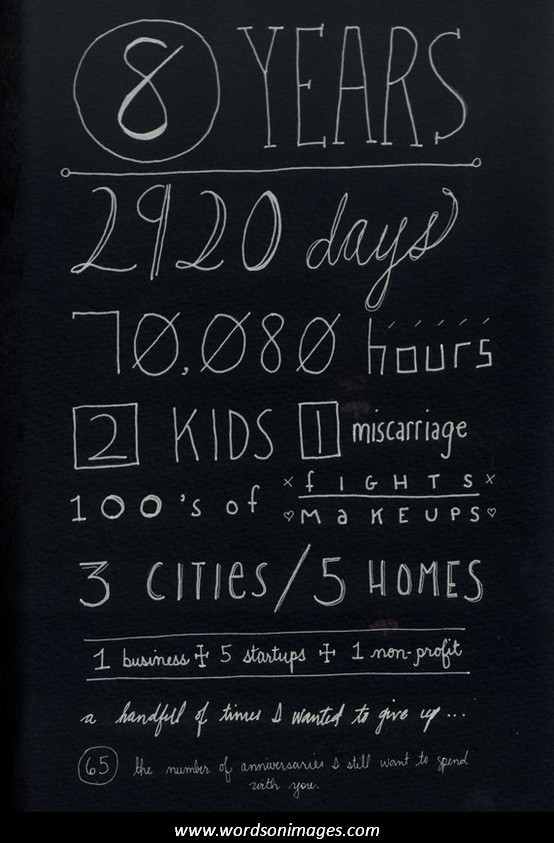 8 YEARS
2920 days
70,080 hours
2 KIDS 1 miscarriage
100's of x FIGHTS x
♡ MaKEUPS ♡
3 CITIES/5 HOMES
1 business + 5 startups + 1 non-profit
a handful of times I wanted to give up...
65 the number of anniversaries I still want to spend
with you.
www.wordsonimages.com